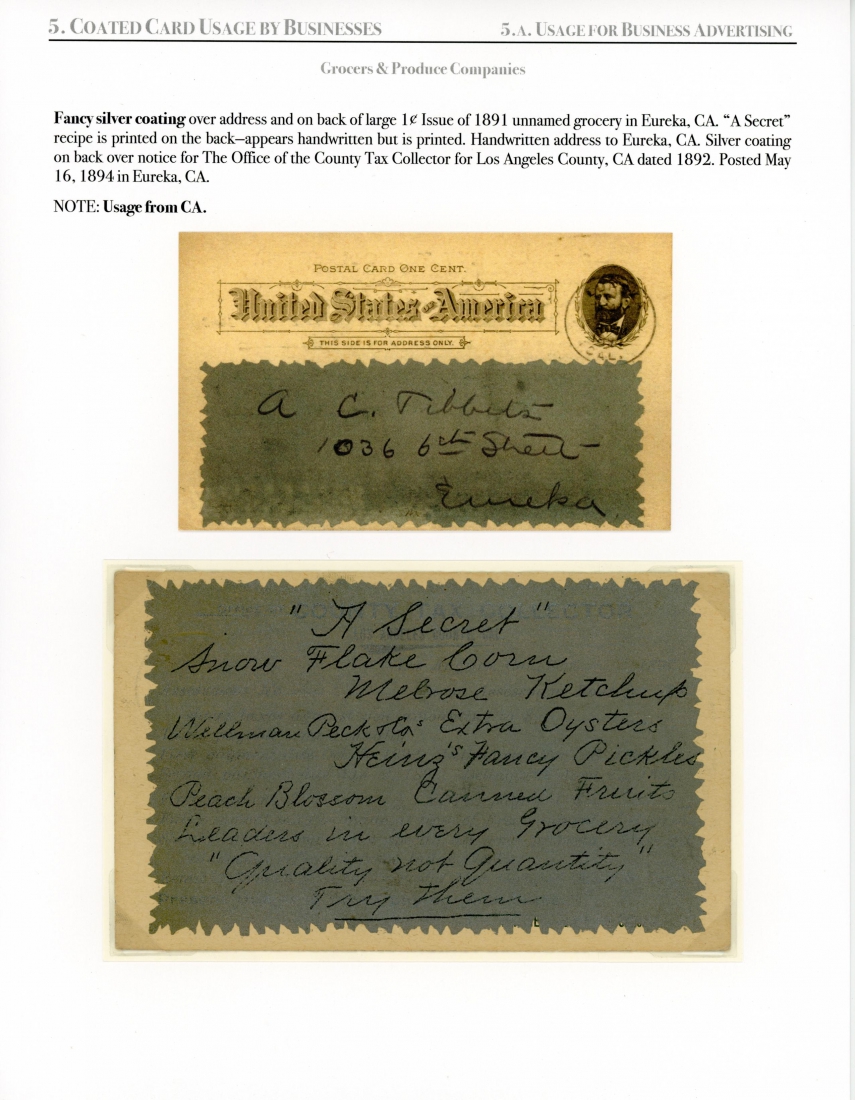 5. COATED CARD USAGE BY BUSINESSES
5.A. USAGE FOR BUSINESS ADVERTISING
Grocers & Produce Companies
Fancy silver coating over address and on back of large 1¢ Issue of 1891 unnamed grocery in Eureka, CA. “A Secret”
recipe is printed on the back—appears handwritten but is printed. Handwritten address to Eureka, CA. Silver coating
on back over notice for The Office of the County Tax Collector for Los Angeles County, CA dated 1892. Posted May
16, 1894 in Eureka, CA.
NOTE: Usage from CA.
POSTAL CARD ONE CENT.
United States of America
THIS SIDE IS FOR ADDRESS ONLY.
CAL.
A C. Tibbets
1036 6th Street
Eureka
"A Secret"
Snow Flake Corn
Melrose Ketchup
Wellman Peck & Co's Extra Oysters
Heinz's Fancy Pickles
Peach Blossom Canned Fruits
Leaders in every Grocery
"Quality not Quantity"
Try them